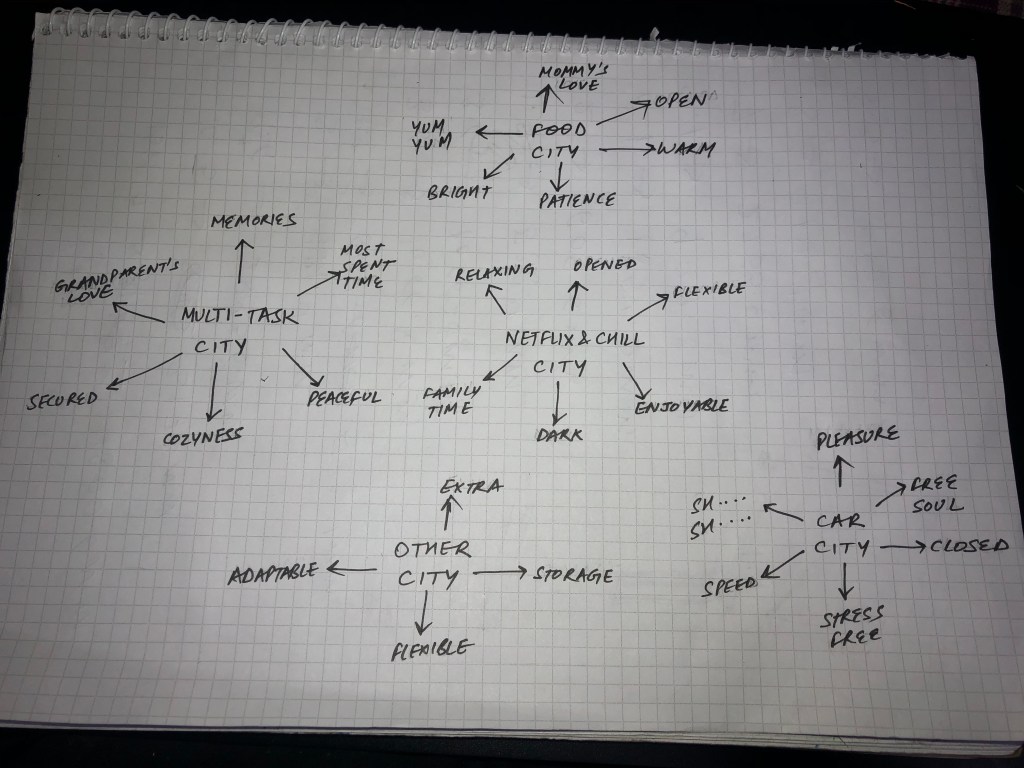 MOMMY'S
LOVE
OPEN
YUM
YUM
FOOD
CITY
WARM
BRIGHT
PATIENCE
MEMORIES
MOST
SPENT
TIME
GRANDPARENT'S
LOVE
MULTI-TASK
CITY
SECURED
PEACEFUL
COZYNESS
RELAXING
OPENED
FLEXIBLE
NETFLIX & CHILL
CITY
FAMILY
TIME
ENJOYABLE
DARK
EXTRA
OTHER
CITY
ADAPTABLE
STORAGE
FLEXIBLE
PLEASURE
FREE
SOUL
SH....
SH....
CAR
CITY
CLOSED
SPEED
STRESS
FREE